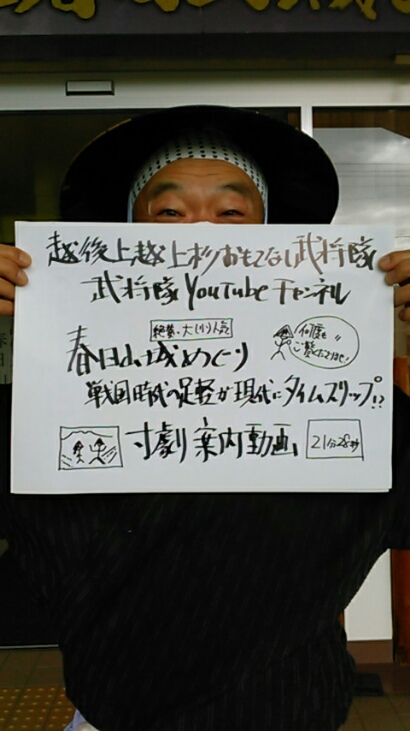 越後上越上杉おもてなし武将隊
武将隊YouTubeチャンネル
絶賛・大(小)人気
春日山城めぐり
何度も
ご覧くだされ!
戦国時代の足軽が現代にタイムスリップ!?
寸劇案内動画
21分28秒